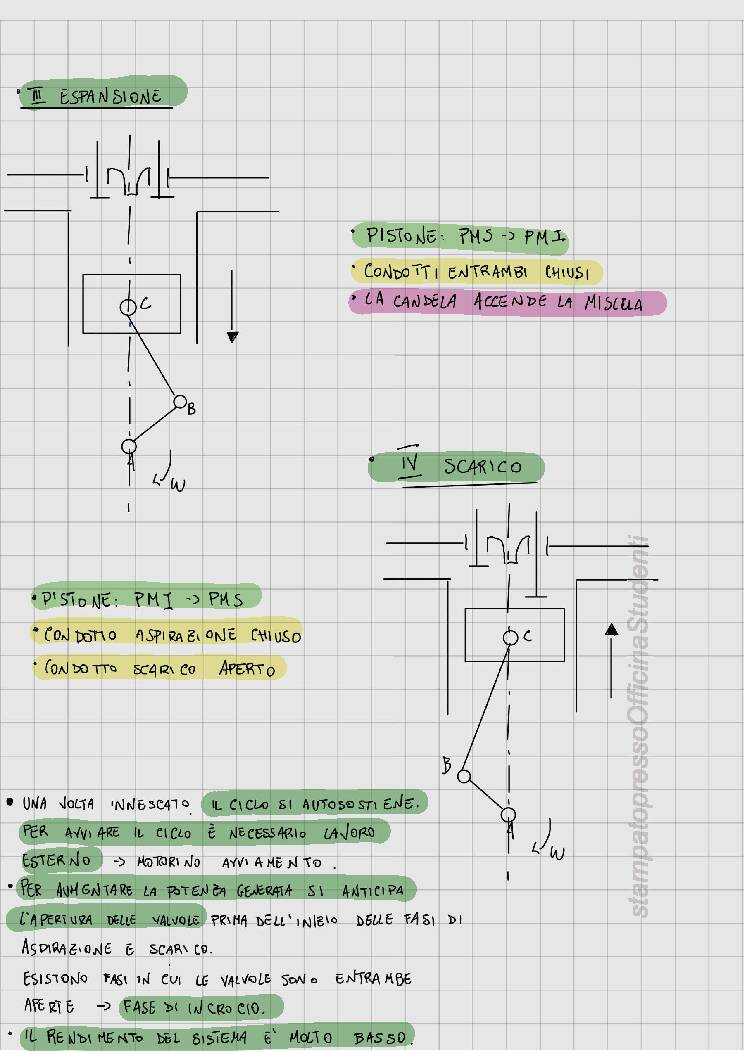 • III ESPANSIONE
• PISTONE: PMS -> PMI
• CONDOTTI ENTRAMBI CHIUSI
• LA CANDELA ACCENDE LA MISCELA
C
B
A
W
• IV SCARICO
• PISTONE: PMI -> PMS
• CONDOTTO ASPIRAZIONE CHIUSO
• CONDOTTO SCARICO APERTO
C
B
A
W
stampatopressoOfficinaStudenti
• UNA VOLTA INNESCATO IL CICLO SI AUTOSOSTIENE.
PER AVVIARE IL CICLO È NECESSARIO LAVORO
ESTERNO -> MOTORINO AVVIAMENTO.
• PER AUMENTARE LA POTENZA GENERATA SI ANTICIPA
L'APERTURA DELLE VALVOLE PRIMA DELL'INIZIO DELLE FASI DI
ASPIRAZIONE E SCARICO.
ESISTONO FASI IN CUI LE VALVOLE SONO ENTRAMBE
APERTE -> FASE DI INCROCIO.
• IL RENDIMENTO DEL SISTEMA E' MOLTO BASSO.